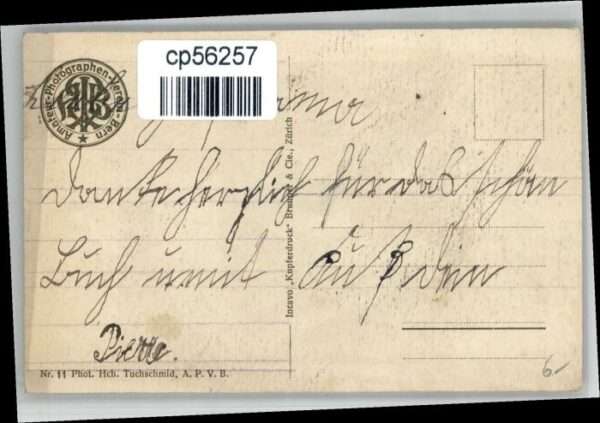 cp56257
Amateur-Photographen-Verein-Bern
danke herzlich für das schön
Buch u mit Kuß dein
Pierre.
Intavo „Kupferdruck“ Brunner & Cie., Zürich
Nr. 11 Phot. Hch. Tuchschmid, A. P. V. B.
6-